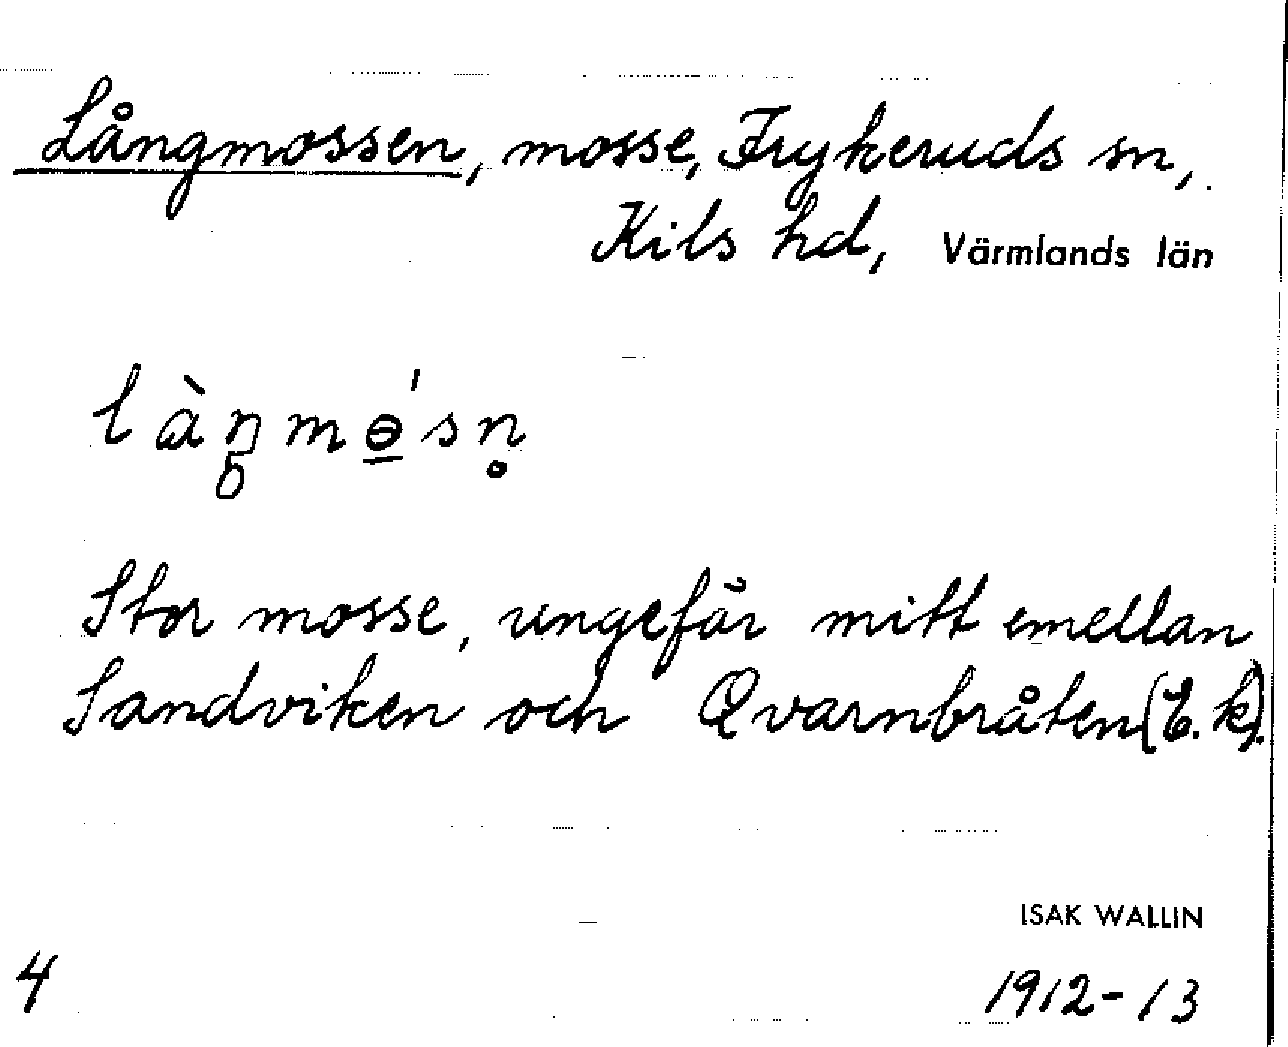 Långmossen, mosse, Frykeruds sn,
Kils hd, Värmlands län
làŋmɵ̲́sn̥
Stor mosse, ungefär mitt emellan
Sandviken och Qvarnbråten (E. k).
ISAK WALLIN
4 1912-13